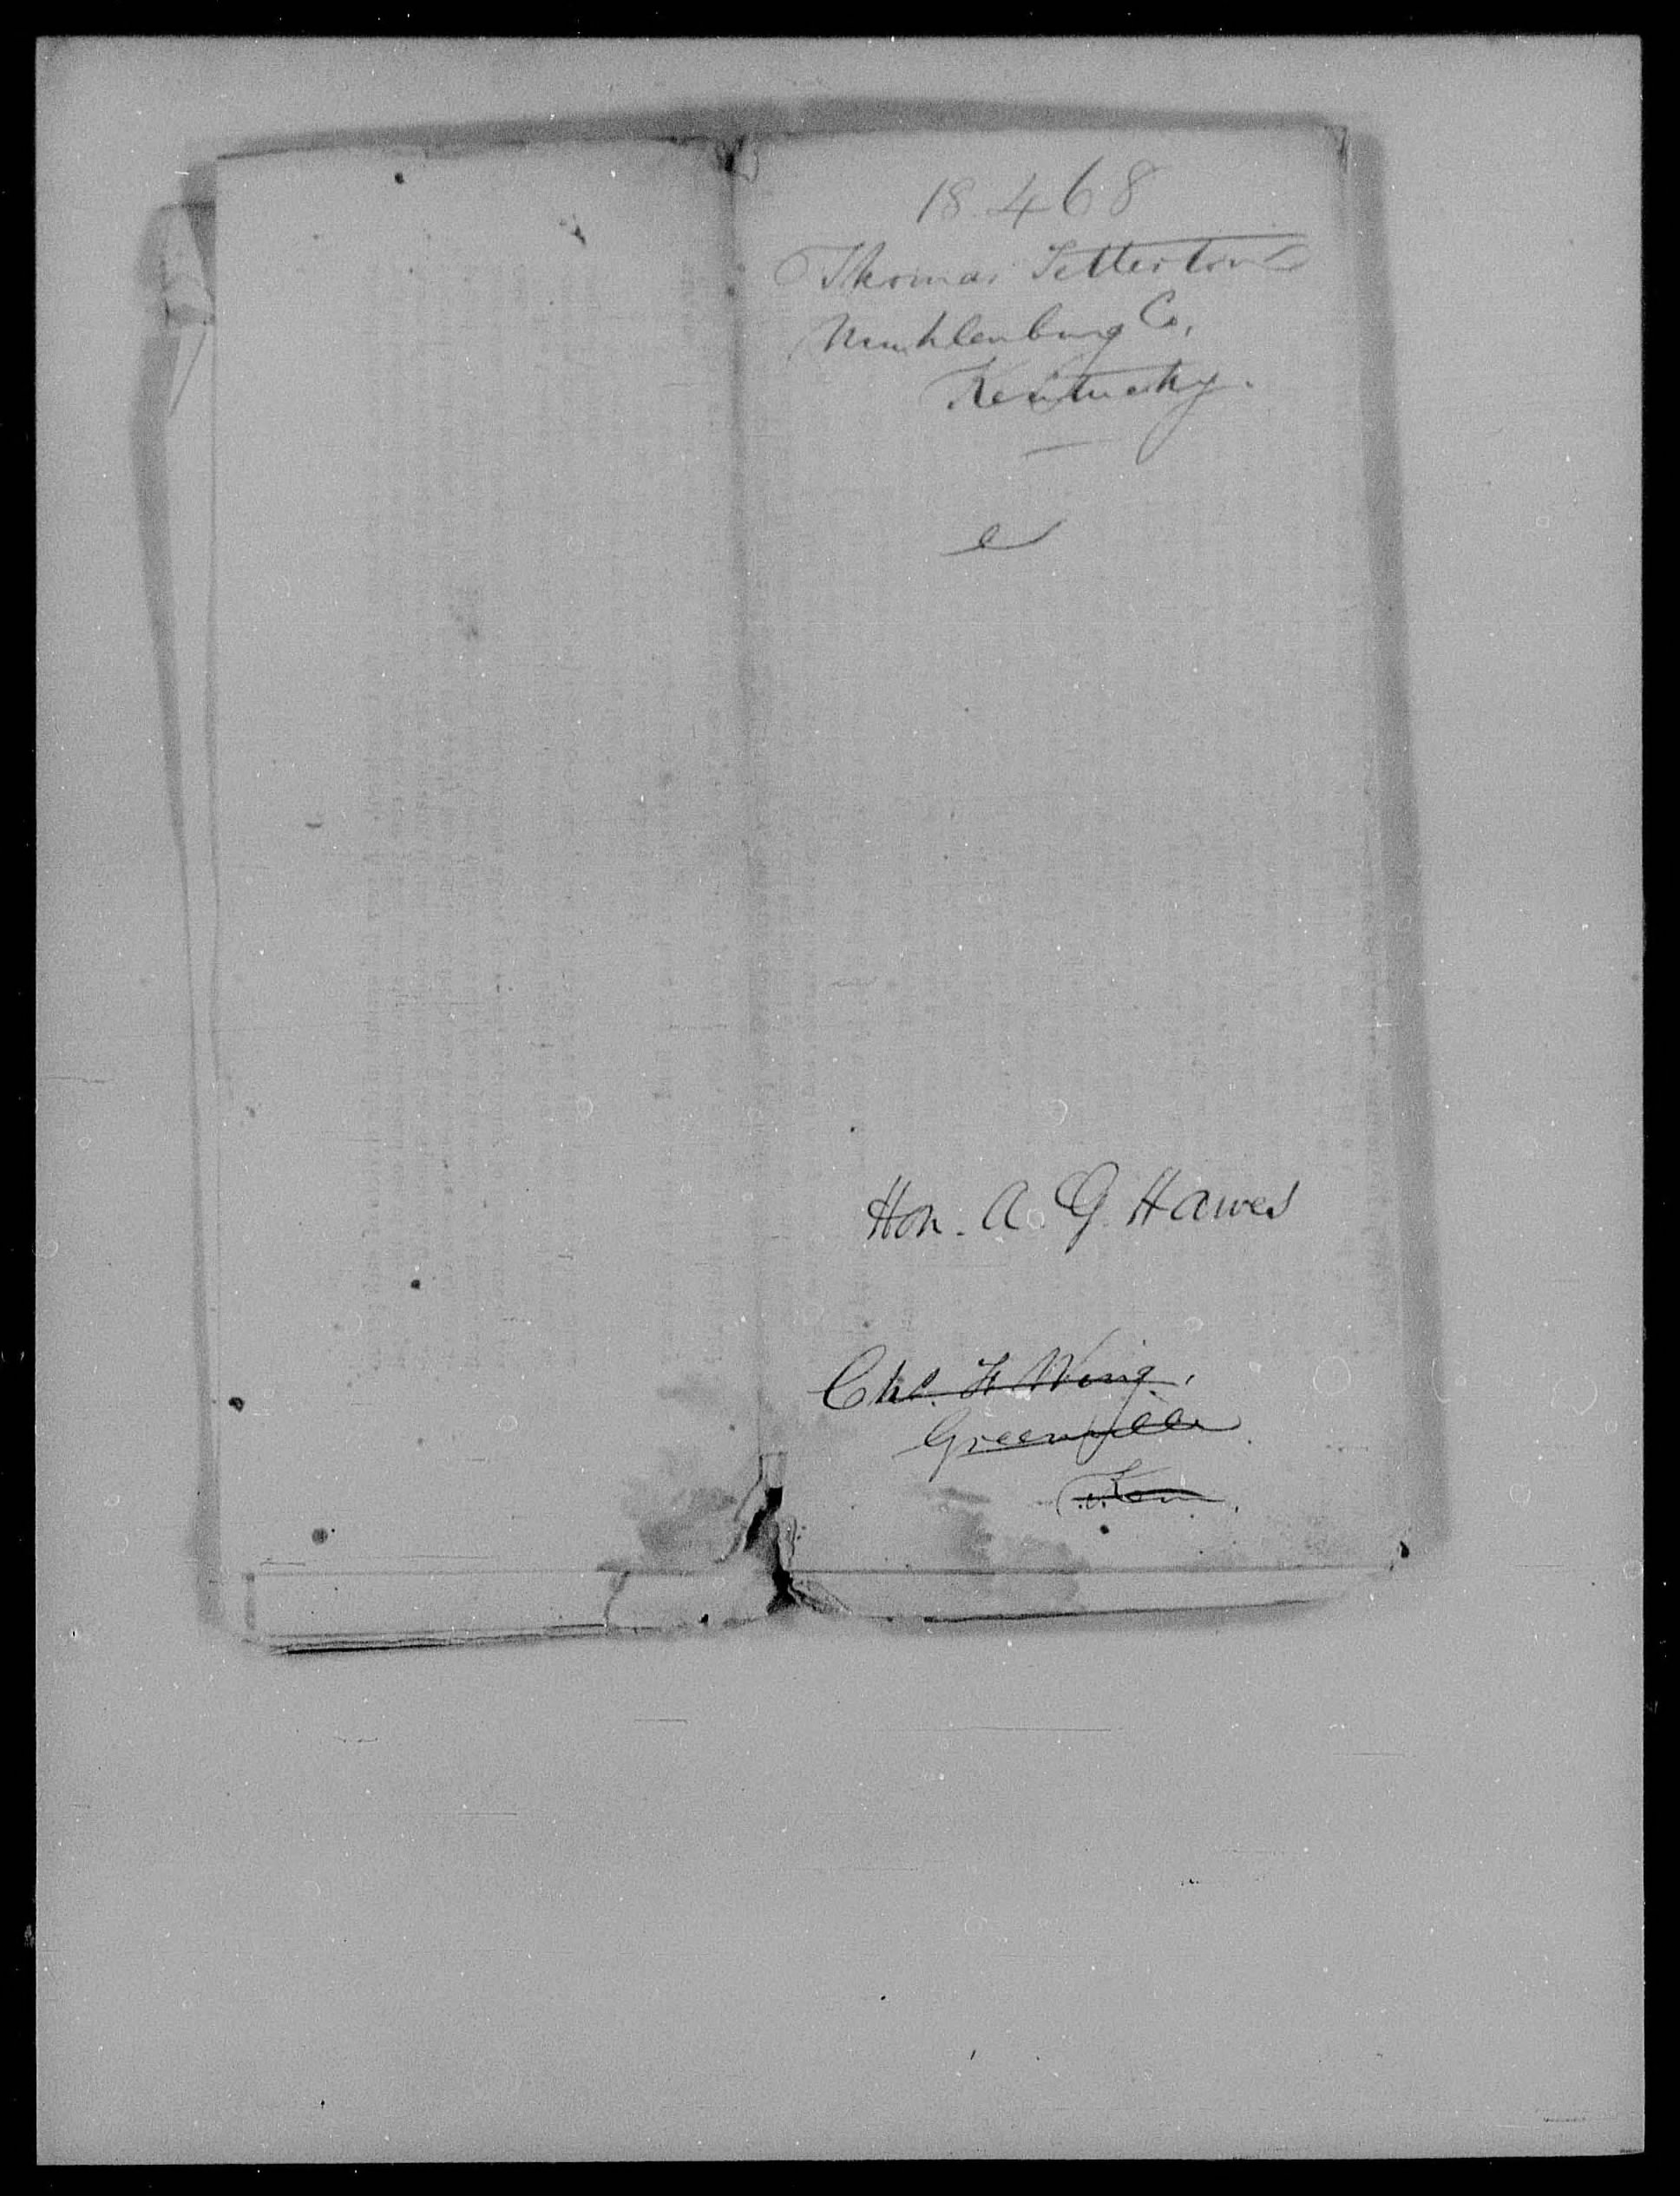 18.468
Thomas Tetterton
Muhlenburg Co.
Kentucky.
Hon. A. G. Hawes
Chs. F. Wing,
Greenville
Ken.